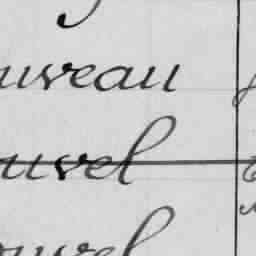 uveau
ouvel
ouvel